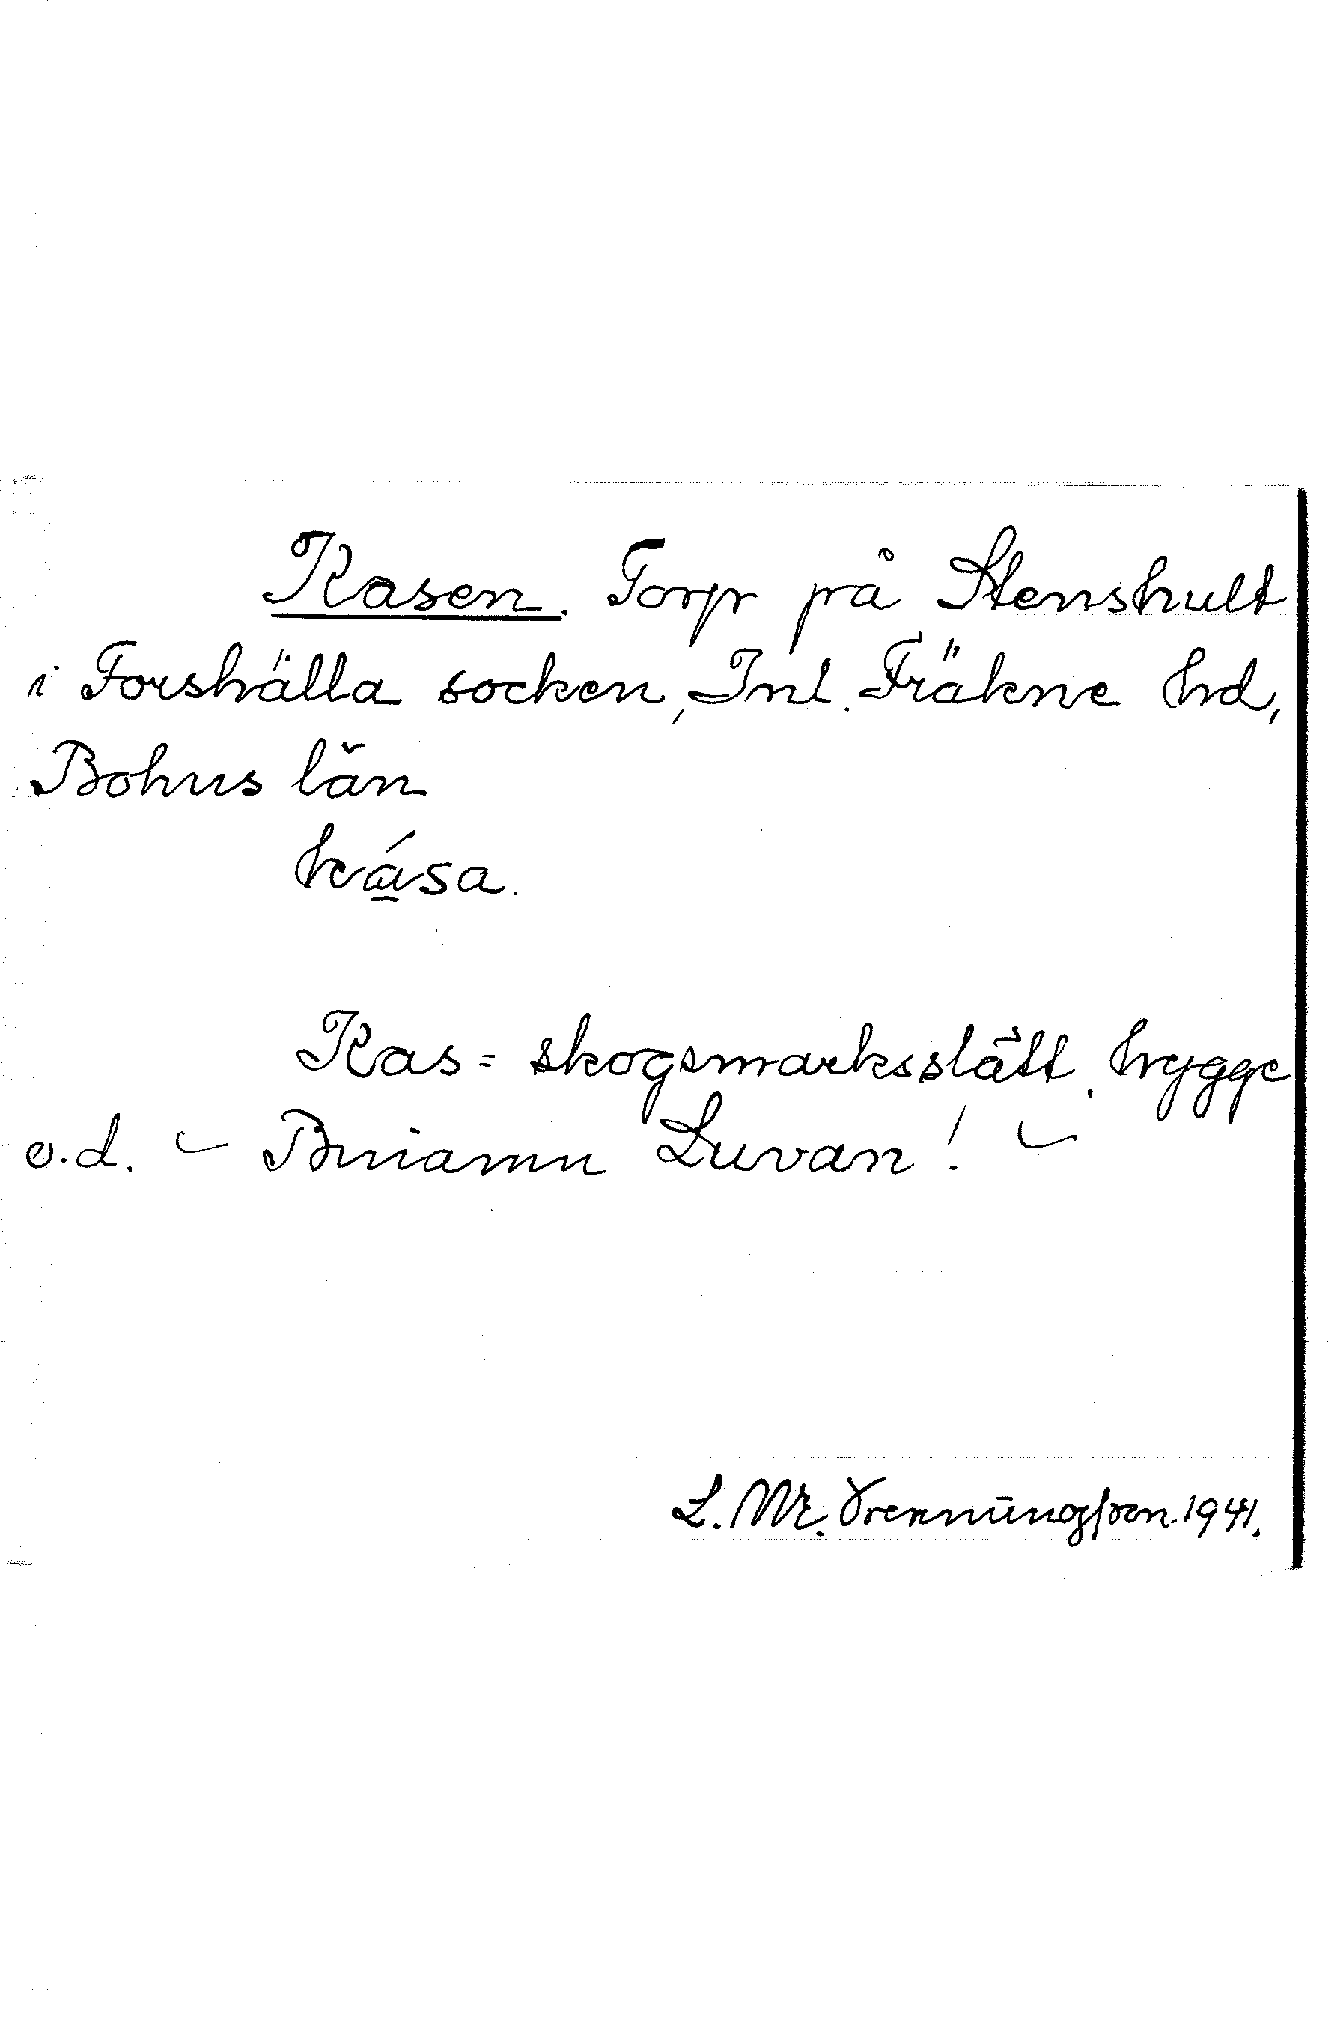 Kasen. Torp på Stenshult
i Forshälla socken, Inl. Fräkne hd,
Bohus län
kása.
Kas = skogsmarksslätt, hygge
o.d. – Binamn Luvan! –
L. M. Svenningsson 1941.